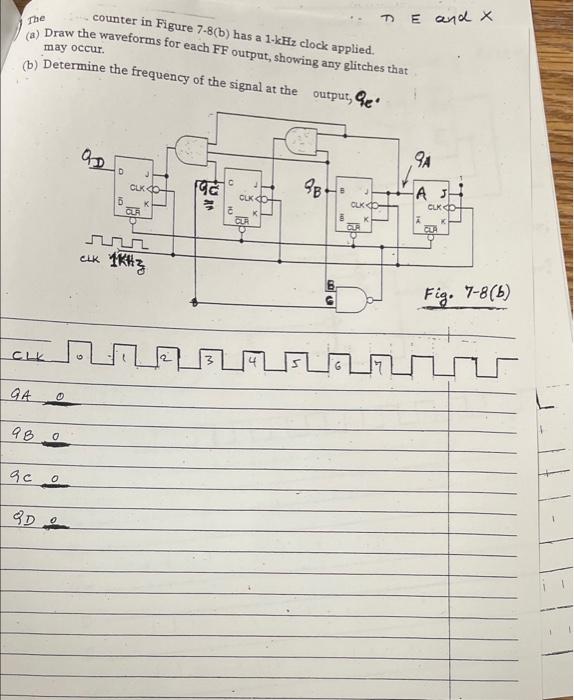 E and X
The counter in Figure 7-8(b) has a 1-kHz clock applied.
(a) Draw the waveforms for each FF output, showing any glitches that
may occur.
(b) Determine the frequency of the signal at the output, qc.
qA
qD
D J
CLK
D̅ K
C̅L̅R̅
qC
C J
CLK
C̅ K
C̅L̅R̅
qB
B J
CLK
B̅ K
C̅L̅R̅
A J
CLK
A̅ K
C̅L̅R̅
1
CLK 1KHz
B
C
Fig. 7-8(b)
CLK 0 1 2 3 4 5 6 7
qA 0
qB 0
qC 0
qD 0